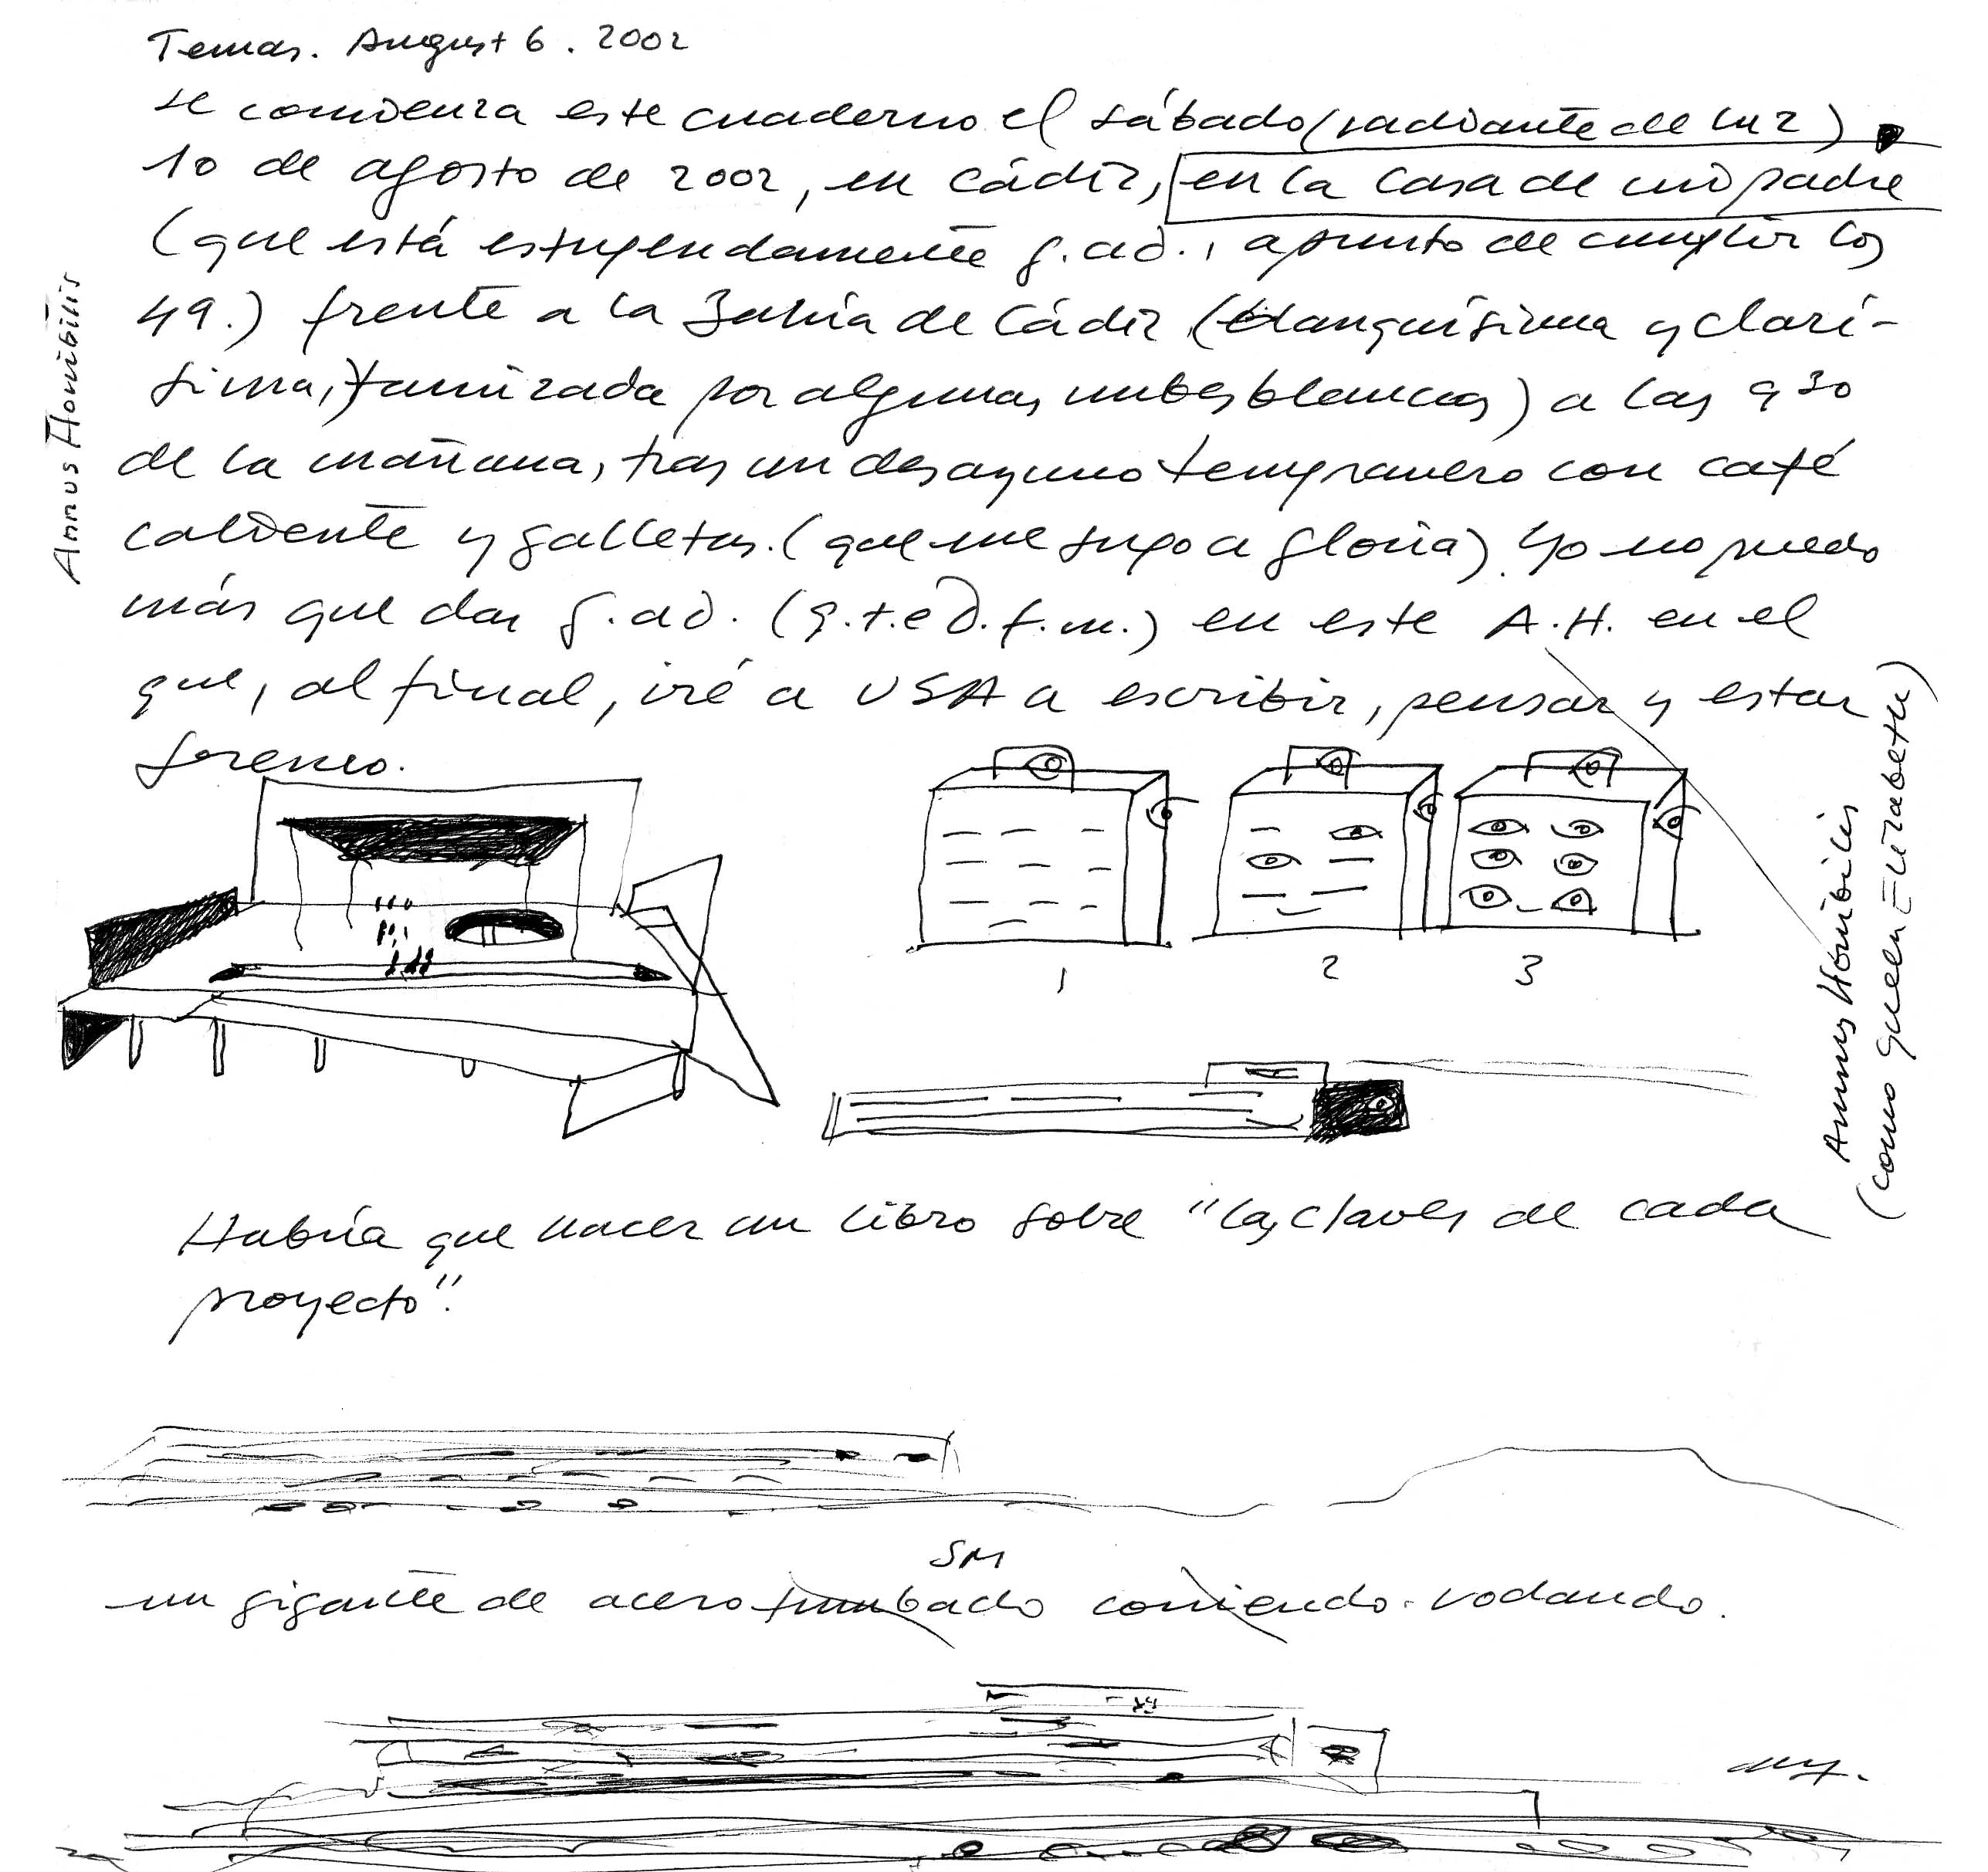 Temas. August 6. 2002
se comienza este cuaderno el sábado (radiante de luz)
10 de agosto de 2002, en Cádiz, en la casa de mi padre
(que está estupendamente g.ad., a punto de cumplir los
49.) frente a la Bahía de Cádiz (blanquísima y clarí-
sima, tamizada por algunas nubes blancas) a las 9 30
de la mañana, tras un desayuno tempranero con café
caliente y galletas. (que me supo a gloria). Yo no puedo
más que dar g.ad. (q.t.e D.f.m.) en este A.H. en el
que, al final, iré a USA a escribir, pensar y estar
sereno.
Annus Horribilis
Annus Horribilis
(como queen Elizabeth)
1 2 3
Habría que hacer un libro sobre "las claves de cada
proyecto".
SM
un gigante de acero tumbado corriendo. rodando.